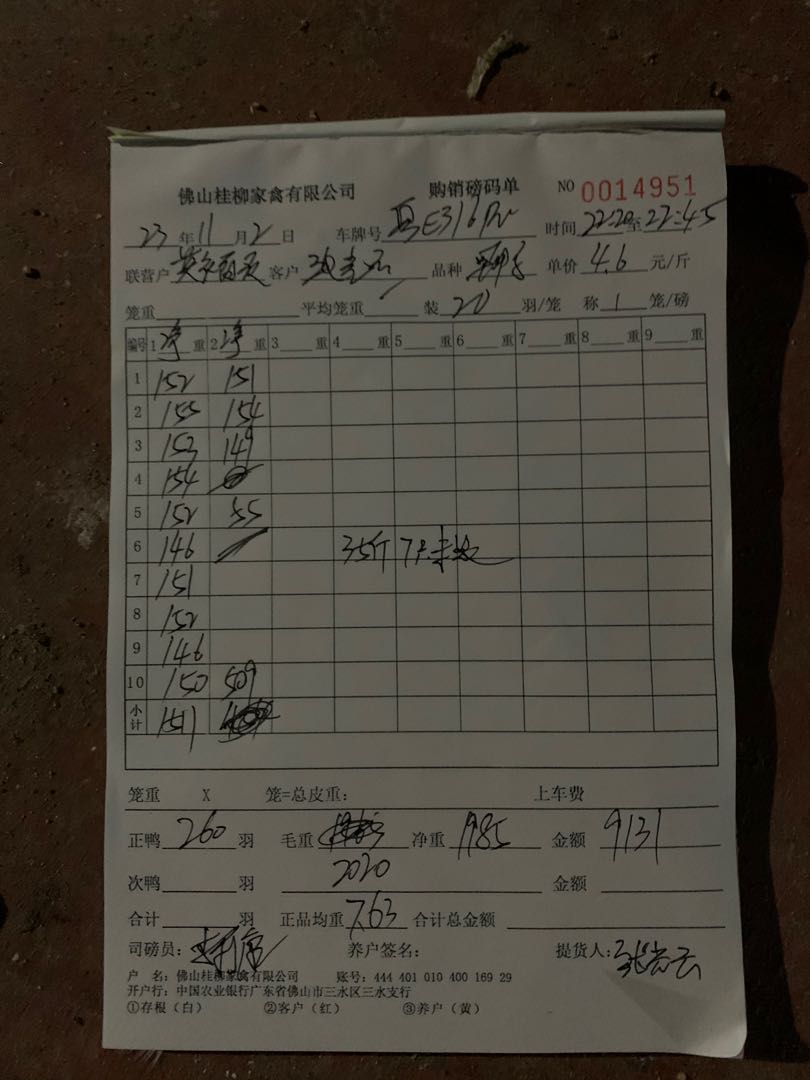 佛山桂柳家禽有限公司 购销磅码单 NO 0014951
23 年 11 月 2 日 车牌号 E316 时间 22:20 至 22:45
联营户 客户 品种 单价 4.6 元/斤
笼重 平均笼重 装 20 羽/笼 称 1 笼/磅
编号 1 净 重 2 净 重 3 重 4 重 5 重 6 重 7 重 8 重 9 重
1 152 151
2 155 154
3 153 149
4 154
5 152 55
6 146 35斤 7只未
7 151
8 152
9 146
10 150 509
小计 1511
笼重 X 笼=总皮重: 上车费
正鸭 260 羽 毛重 净重 1985 金额 9131
次鸭 羽 2020 金额
合计 羽 正品均重 7.63 合计总金额
司磅员: 养户签名: 提货人:
户 名: 佛山桂柳家禽有限公司 账号: 444 401 010 400 169 29
开户行: 中国农业银行广东省佛山市三水区三水支行
①存根（白） ②客户（红） ③养户（黄）